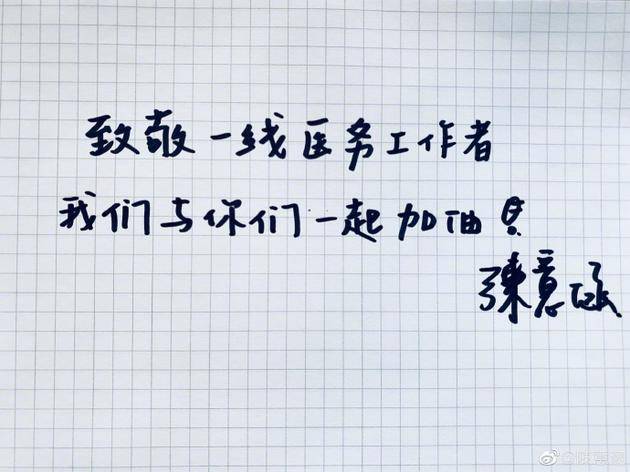 致敬一线医务工作者
我们与你们一起加油!
陳意涵